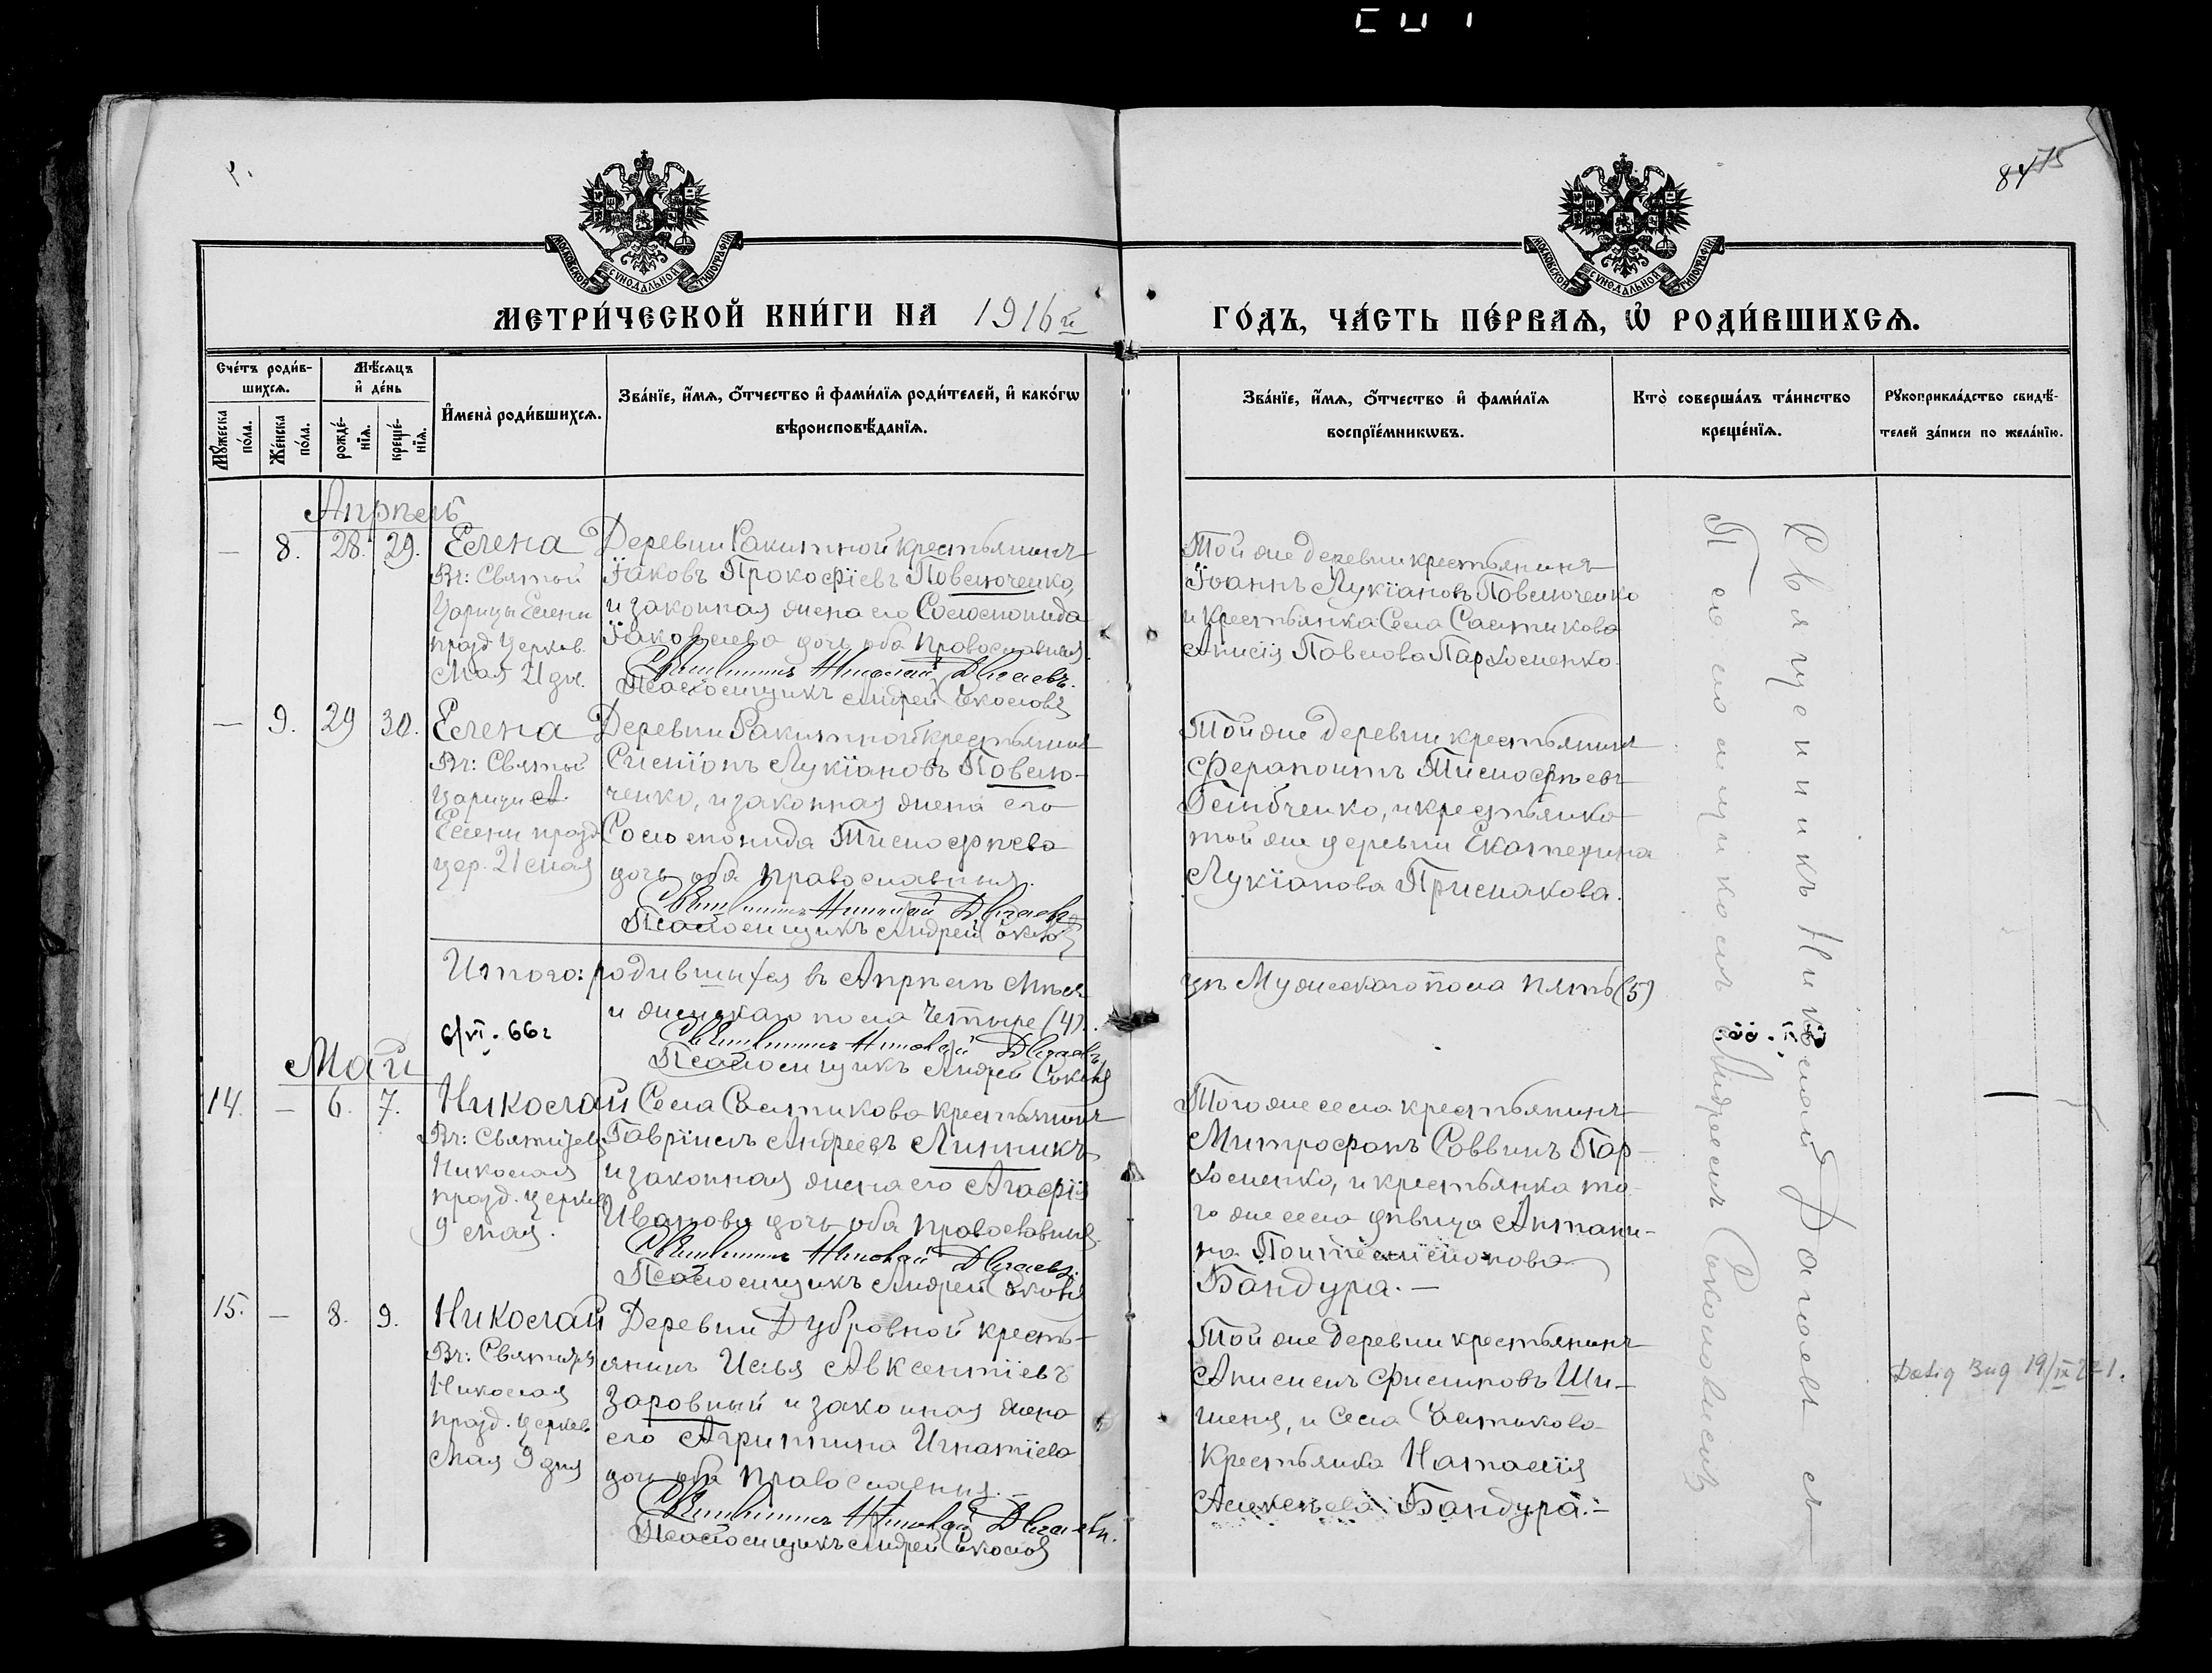 84 75
МОСКОВСКОЙ СУНОДАЛЬНОЙ ТИПОГРАФІИ
МОСКОВСКОЙ СУНОДАЛЬНОЙ ТИПОГРАФІИ
МЕТРИ́ЧЕСКОЙ КНИ́ГИ НА 1916й
ГО́ДЪ, ЧА́СТЬ ПЕ́РВАѦ, Ѡ РОДИ́ВШИХСѦ.
Сче́тъ роди́в-
шихсѧ.
Мѣ́сѧцъ
и де́нь
Мꙋ́жеска
по́ла.
Же́нска
по́ла.
рожде́-
нїѧ.
креще́-
нїѧ.
Имена̀ роди́вшихсѧ.
Зва́нїе, и́мѧ, ѻ́тчество и фами́лїѧ роди́телей, и како́гѡ
вѣроисповѣ́данїѧ.
Зва́нїе, и́мѧ, ѻ́тчество и фами́лїѧ
воспрїе́мникѡвъ.
Кто̀ соверша́лъ та́инство
креще́нїѧ.
Рꙋкоприкла́дство свидѣ́-
телей за́писи по жела́нїю.
Апрѣль
— 8. 28. 29. Елена
Вч: Святой
Царицы Елены
празд. церков.
Мая 21 дня.
Деревни Ракитной крестьянинъ
Іаковъ Прокофіевъ Повелюченко,
и законная жена его Соломонида
Іаковлева дочь оба православныя.
Священникъ Николай
Псаломщикъ Андрей Соколовъ
Той же деревни крестьянинъ
Іоаннъ Лукіановъ Повелюченко
и крестьянка села Салтикова
Анисія Павлова Пархоменко.
— 9. 29 30. Елена
Вч: Святой
царицы
Елены празд.
цер. 21 мая
Деревни Ракитной крестьянинъ
Симіонъ Лукіановъ Повелю-
ченко, и законная жена его
Соломонида Тимофѣева
дочь оба православныя.
Священникъ Николай
Псаломщикъ Андрей Соколовъ
Той же деревни крестьянинъ
Ферапонтъ Тимофѣевъ
и крестьянка
той же деревни Екатерина
Лукіанова Примакова.
Итого: родившихся въ Апрѣлѣ мѣся-
цѣ мужескаго пола пять (5)
и женскаго пола четыре (4).
6/VI. 66г
Священникъ Николай
Псаломщикъ Андрей Соколовъ
Май
14. — 6. 7. Николай
Вч: Святителя
Николая
празд. церков.
9 мая.
Села Салтикова крестьянинъ
Гавріилъ Андреевъ Линникъ
и законная жена его Агафія
Иванова дочь оба православныя.
Священникъ Николай
Псаломщикъ Андрей Соколовъ
Того же села крестьянинъ
Митрофанъ Саввинъ Пар-
хоменко, и крестьянка то-
го же села дѣвица Антони-
на
Бандура. —
15. — 8. 9. Николай
Вч: Святителя
Николая
празд. церков.
мая 9 дня
Деревни Дубровной кресть-
янинъ Илья Авксентіевъ
Заровный и законная жена
его Агриппина Игнатіева
дочь оба православныя. —
Священникъ Николай
Псаломщикъ Андрей Соколовъ
Той же деревни крестьянинъ
Анисимъ Филиповъ Ши-
шеня, и села Салтикова
крестьянка Наталія
Алексѣева Бандура. —
Священникъ Николай
съ
Псаломщикомъ Андреемъ Соколовымъ